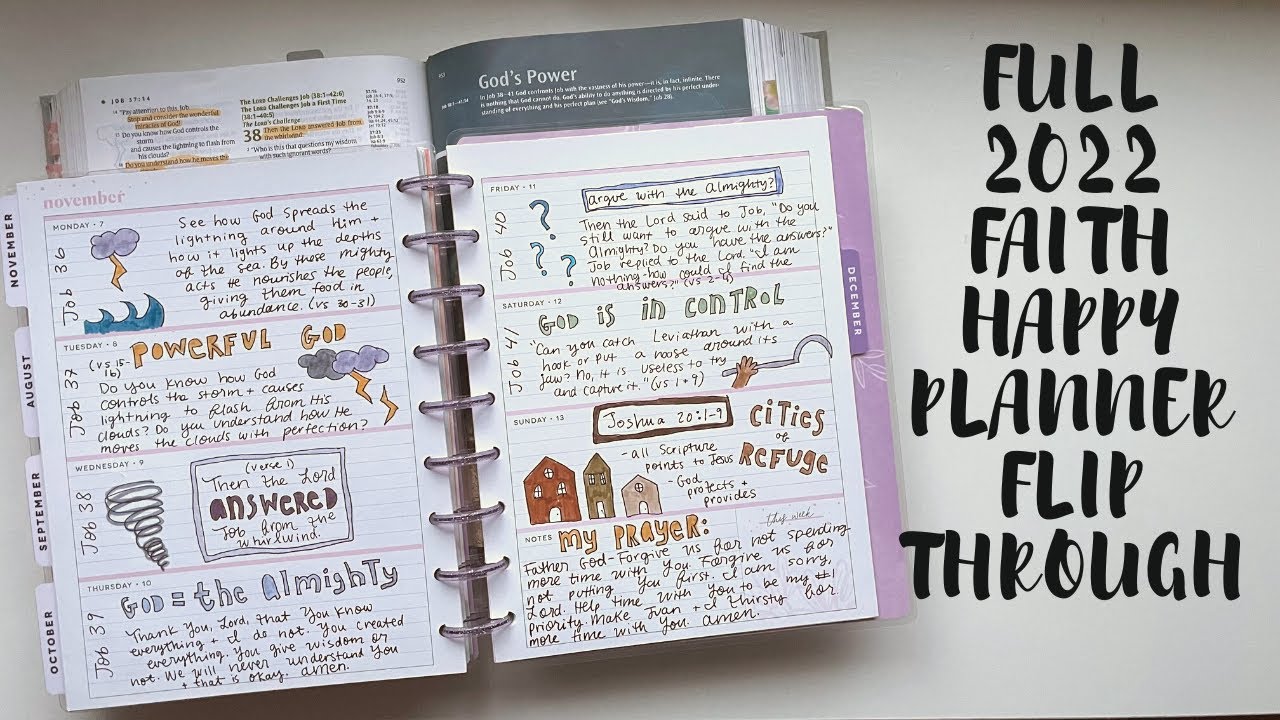 FULL
2022
FAITH
HAPPY
PLANNER
FLIP
THROUGH
952
JOB 37:14
"Pay attention to this, Job.
Stop and consider the wonderful
miracles of God!
Do you know how God controls the
storm
and causes the lightning to flash from
his clouds?
Do you understand how he moves the
The LORD Challenges Job (38:1–42:6)
The LORD Challenges Job a First Time
(38:1–40:5)
The LORD's Challenge
38 Then the LORD answered Job from
the whirlwind:
"Who is this that questions my wisdom
with such ignorant words?
God's Power
In Job 38–41 God confronts Job with the vastness of his power—it is, in fact, infinite. There
is nothing that God cannot do. God's ability to do anything is directed by his perfect under-
standing of everything and his perfect plan (see "God's Wisdom," Job 28).
NOVEMBER
AUGUST
SEPTEMBER
OCTOBER
november
MONDAY • 7
Job 36
See how God spreads the
lightning around Him +
how it lights up the depths
of the sea. By these mighty
acts He nourishes the people,
giving them food in
abundance. (vs 30-31)
TUESDAY • 8
Job 37
(vs 15-
16)
POWERFUL GOD
Do you know how God
controls the storm + causes
lightning to flash from His
clouds? Do you understand how He
moves the clouds with perfection?
WEDNESDAY • 9
Job 38
(verse 1)
Then the Lord
ANSWERED
Job from the
whirlwind.
THURSDAY • 10
Job 39
GOD = the almighty
Thank You, Lord, that You know
everything + I do not. You created
everything. You give wisdom or
not. We will never understand You
+ that is okay. amen.
FRIDAY • 11
Job 40
argue with the Almighty?
? ? ?
Then the Lord said to Job, "Do you
still want to argue with the
Almighty? Do you have the answers?"
Job replied to the Lord, "I am
nothing-how could I find the
answers?" (vs 2-4)
SATURDAY • 12
Job 41
GOD is in CONTROL
"Can you catch Leviathan with a
hook or put a noose around its
jaw? No, it is useless to try
and capture it." (vs 1+9)
SUNDAY • 13
Joshua 20:1-9
CITIES
of
REFUGE
-all Scripture
points to Jesus
-God
protects +
provides
NOTES
This week
MY PRAYER:
Father God-Forgive us for not spending
more time with You. Forgive us for
not putting You first. I am sorry,
Lord. Help time with You to be my #1
priority. Make Juan + I thirsty for
more time with You. amen.
DECEMBER